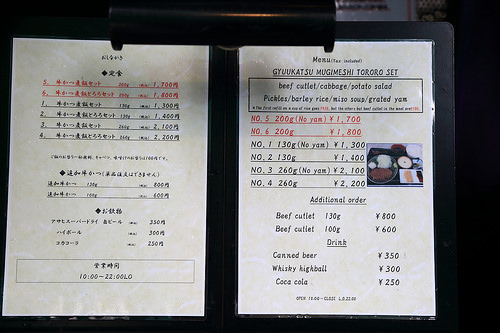 おしながき
◆定食
5. 牛かつ麦飯セット 200g (税込) 1,700円
6. 牛かつ麦飯とろろセット 200g (税込) 1,800円
1. 牛かつ麦飯とろろセット 130g (税込) 1,300円
2. 牛かつ麦飯とろろセット 130g (税込) 1,400円
3. 牛かつ麦飯セット 260g (税込) 2,100円
4. 牛かつ麦飯とろろセット 260g (税込) 2,200円
◆追加牛かつ(単品注文はできません)
追加牛かつ 130g (税込) 800円
追加牛かつ 100g (税込) 600円
◆お飲物
アサヒスーパードライ 缶ビール (税込) 350円
ハイボール (税込) 300円
コカコーラ (税込) 250円
営業時間
10:00~22:00LO
Menu (Tax included)
GYUUKATSU MUGIMESHI TORORO SET
beef cutlet/cabbage/potato salad
Pickles/barley rice/miso soup/grated yam
NO. 5 200g(No yam) ¥1,700
NO. 6 200g ¥1,800
NO. 1 130g(No yam) ¥1,300
NO. 2 130g ¥1,400
NO. 3 260g(No yam) ¥2,100
NO. 4 260g ¥2,200
Additional order
Beef cutlet 130g ¥800
Beef cutlet 100g ¥600
Drink
Canned beer ¥350
Whisky highball ¥300
Coca cola ¥250
OPEN 10:00~CLOSE L.O.22:00